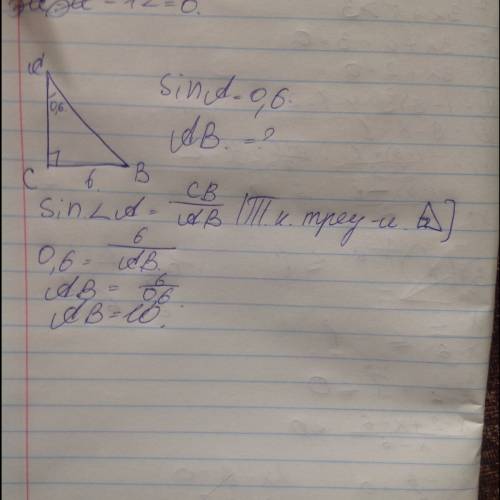 - 12 = 0.
A
0,6
C
6
B
sin A = 0,6.
AB. = ?
sin∠A = CB/AB [Т.к. треу-к. ⊿]
0,6 = 6/AB.
AB = 6/0,6
AB = 10.